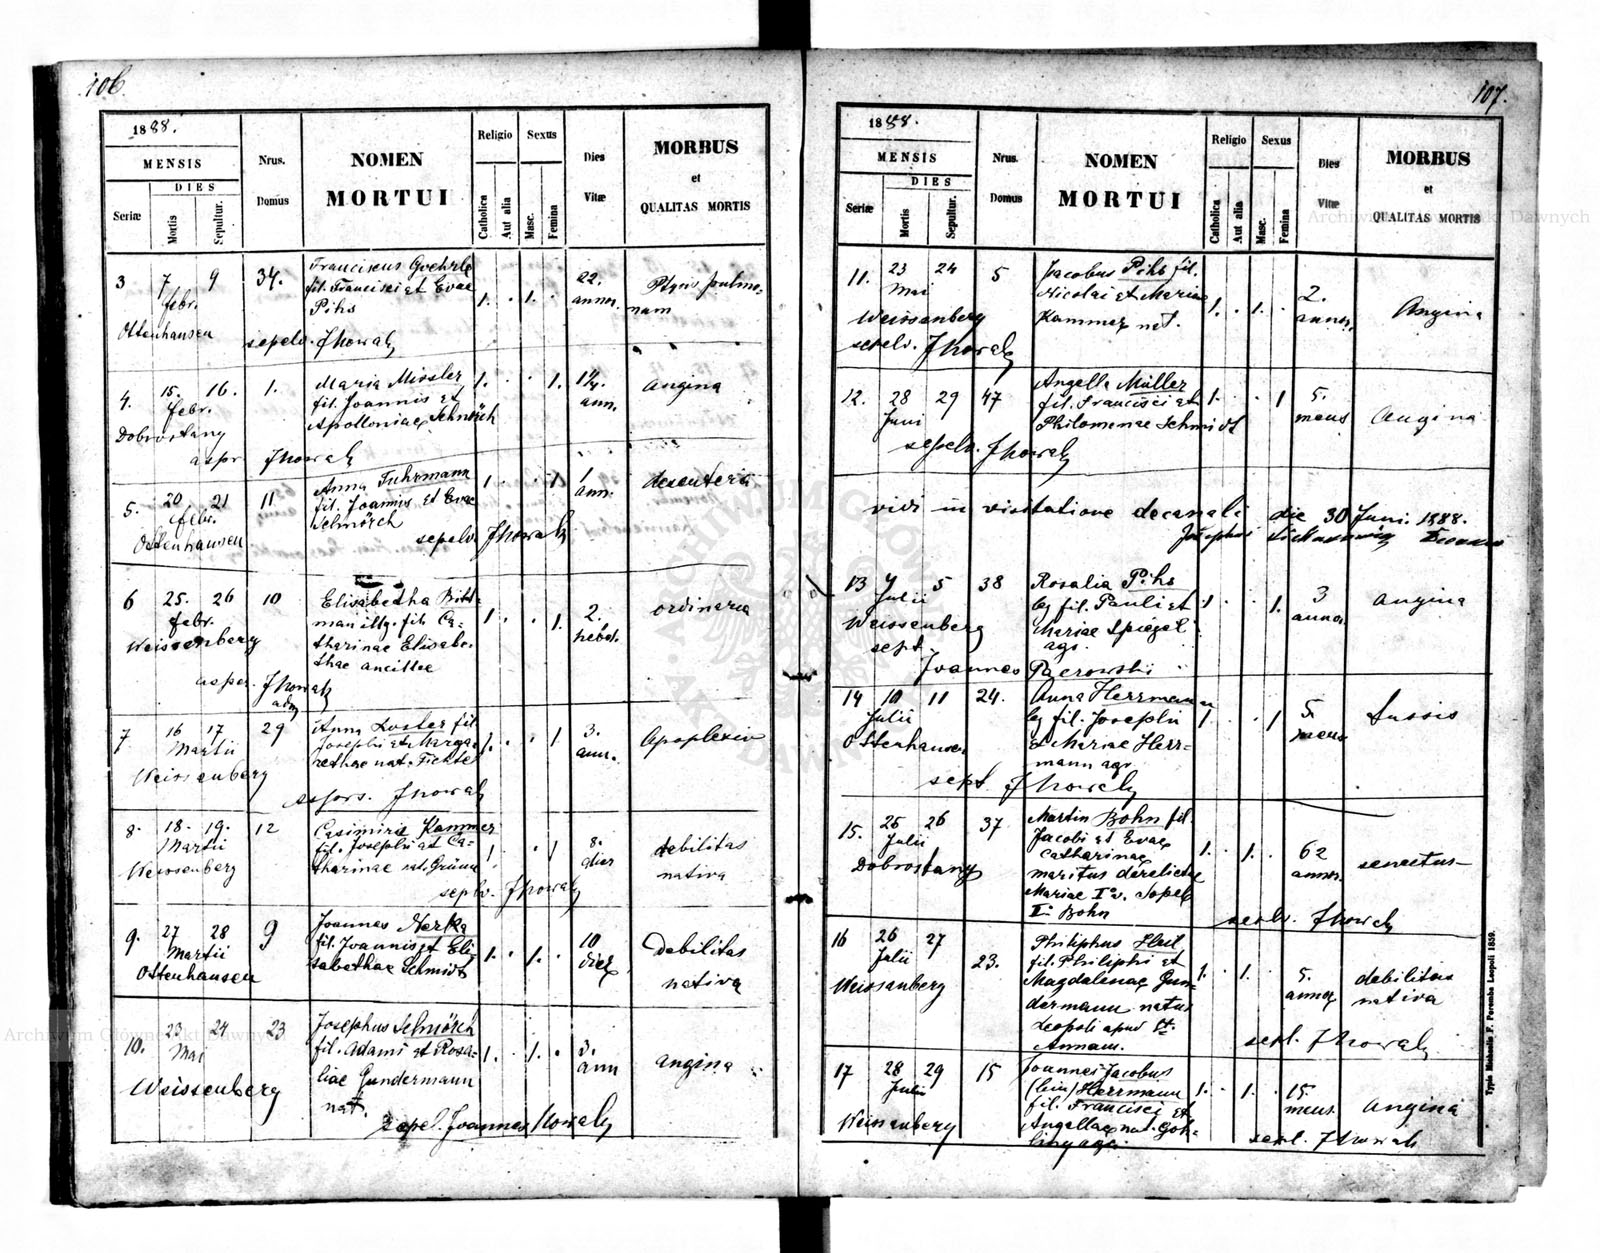 106.
1888.
MENSIS
DIES
Seriæ
Mortis
Sepultur.
Nrus.
Domus
NOMEN
MORTUI
Religio
Catholica
Aut alia
Sexus
Masc.
Femina
Dies
Vitæ
MORBUS
et
QUALITAS MORTIS
3 7 9 34. Franciscus Goehrle 1. 1. 22.
febr. fil. Francisci et Evae annor.
Pihs
Ottenhausen
sepeliv. JNowak
4. 15. 16. 1. Maria Missler 1. 1. 1¼ angina
febr. fil. Joannis et ann.
Dobrostany Apolloniae Schmörch
aspor JNowak
5. 20 21 11 Anna Fuhrmann 1. 1 1
febr. fil. Joannis et Evae ann.
Ottenhausen Schmörch
sepeliv JNowak
6 25. 26 10 Elisabetha 1. 1. 2. ordinaria
febr. man illg. fil. Ca- hebd.
Weissenberg tharinae Elisabe-
thae ancillae
asper. JNowak
adm
7 16 17 29 Anna fil 1. 1 3. Apoplexia
Martii Josephi et Marga- ann.
Weissenberg rethae nat. Fichtel
aspors. JNowak
8. 18. 19. 12 Casimiris Kammer 1. 1 8. debilitas
Martii fil. Josephi et Ca- dier nativa
Weissenberg tharinae nat.
sepliv. JNowak
9. 27 28 9 Joannes 1. 1. 10 debilitas
Martii fil. Joannis et Eli- dier nativa
Ottenhausen sabethae Schmidt
10. 23 24 23 Josephus Schmörch 1. 1. 3. angina
Mai fil. Adami et Rosa- ann
Weissenberg liae Gundermann
nat.
sepel. Joannes Nowak
107.
1888.
MENSIS
DIES
Seriæ
Mortis
Sepultur.
Nrus.
Domus
NOMEN
MORTUI
Religio
Catholica
Aut alia
Sexus
Masc.
Femina
Dies
Vitæ
MORBUS
et
QUALITAS MORTIS
11. 23 24 5 Jacobus Pihs fil. 1. 1. 2. Angina
Mai Nicolai et Mariae annor.
Weissenberg Kammer nat.
sepeliv. JNowak
12. 28 29 47 Angella Müller 1. 1 5. Angina
Juni fil. Francisci et mens
Philomenae Schmidt
sepeliv. JNowak
vidi in visitatione decanali die 30 Juni. 1888.
Josephus
13 5 38 Rosalia Pihs 1 1. 3 angina
Julii leg fil. Pauli et annor
Weissenberg Mariae Spiegel
sept. agr.
Joannes
14 10 11 24. Anna Herrmann 1. 1 5. tussis
Julii leg fil. Josephi mens
Ottenhausen et Mariae Herr-
mann agr
sept. JNowak
15. 25 26 37 Martin Bohn fil. 1. 1. 62 senectus
Julii Jacobi et Evae annor.
Dobrostany Catharinae
maritus derelictae
Mariae Iº v.
IIº Bohn
sepliv. JNowak
16 26 27 23. Philiphus 1. 1. 5. debilitas
Julii fil. Philiphi et annor nativa
Weissenberg Magdalenae Gun-
dermann natus
Leopoli apud St.
Annam.
sepl. JNowak
17 28 29 15 Joannes Jacobus 1. 1. 15. angina
Julii (bin) Herrmann mens.
Weissenberg fil. Francisci et
Angellae nat. Goh-
ling agr.
sepl. JNowak
Typis Michaelis F. Poremba Leopoli 1859.
Archiwum Główne Akt Dawnych
Archiwum Główne Akt Dawnych